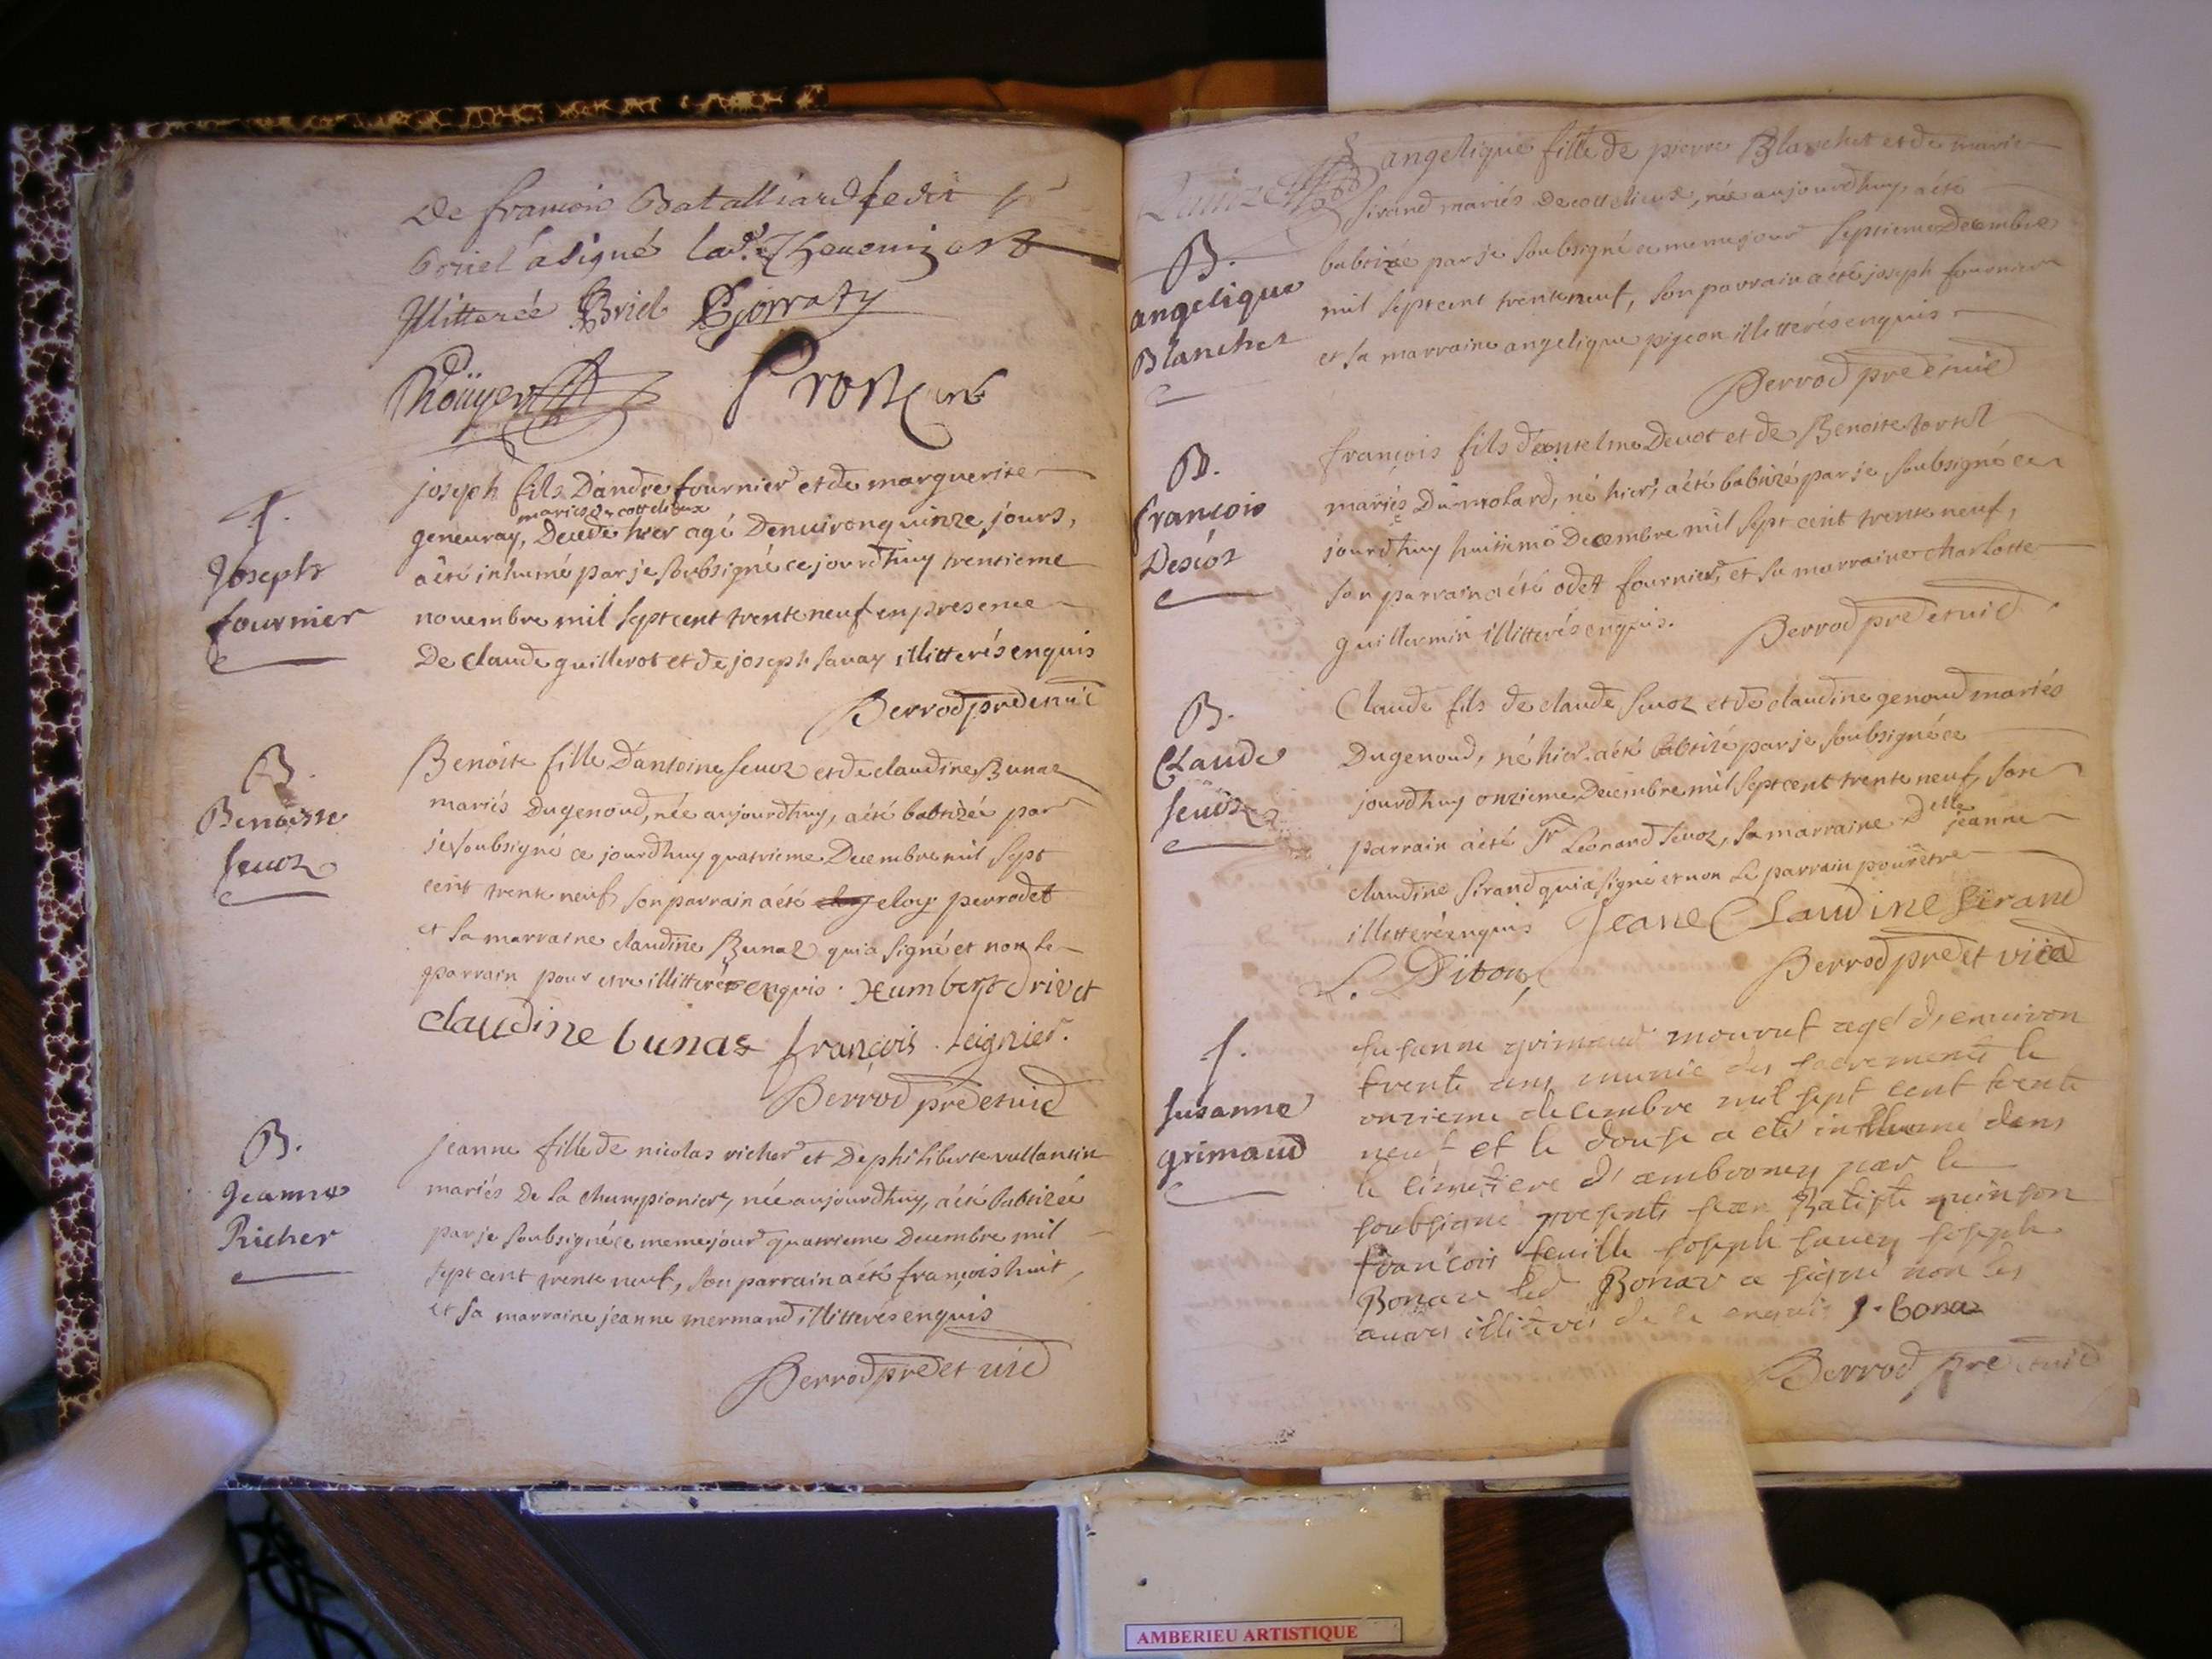 De francois Batalliard ledit
briel a signé lad. Thevenin est
illitterée Briel Bjorraty
Roüyer
joseph fils D'andre fournier et de marguerite
mariés de cottelieux
geneuray, Decede hier agé Denuiron quinze jours,
f.
Joseph
fournier
a été inhumé par je soubsigné ce jourdhuy trentieme
novembre mil sept cent trente neuf en presence
De claude guillerot et de joseph savay illitterés enquis
Berrod pre et vic
B.
Benoiste
Sevoz
Benoite fille D'antoine Sevoz et de claudine Bunaz
mariés Dugenoud, née aujourdhuy, a été babtizée par
je soubsigné ce jourdhuy quatrieme Decembre mil sept
cent trente neuf, son parrain a été eloy perrodet
et sa marraine claudine Bunaz qui a signé et non le
parrain pour etre illitteré enquis. Humbert drivet
claudine bunaz françois Leignier
Berrod pre et vic
B.
Jeanne
Richer
jeanne fille de nicolas richer et De philiberte vullantin
mariés De la championiere, née aujourdhuy, a été babtizée
par je soubsigné ce meme jour quatrieme Decembre mil
sept cent trente neuf, son parrain a été françois huit,
et sa marraine jeanne mermand illitterés enquis
Berrod pre et vic
B.
angelique
Blanchet
angelique fille de pierre Blanchet et de marie
sirand mariés De cottelieux, née aujourdhuy a été
babtizée par je soubsigné ce meme jour septieme Decembre
mil sept cent trente neuf, son parrain a été joseph fournier
et sa marraine angelique pigeon illetterés enquis
Berrod pre et vic
B.
françois
françois fils d'antelme Devot et de Benoite
mariés Du molard, né hier, a été babtizé par je soubsigné ce
jourdhuy huitieme Decembre mil sept cent trente neuf,
son parrain a été odet fournier, et sa marraine charlotte
guillermin illitterés enquis.
Berrod pre et vic
B.
Claude
Sevoz
Claude fils de claude Sevoz et de claudine genoud mariés
Dugenoud, né hier a été babtizé par je soubsigné ce
jourdhuy onzieme Decembre mil sept cent trente neuf, son
parrain a été Sr Leonard Sevoz, sa marraine Delle
jeanne
claudine sirand qui a signé et non le parrain pour etre
illitteré enquis Jeane Claudine Sirand
Berrod pre et vic
f.
susanne
grimaud
susanne grimaud mourut agé d'environ
trente ans munie des sacrements le
onzieme decembre mil sept cent trente
neuf et le douse a eté inhumé dans
le cimetiere d'ambronay par le
soubsigné presents jean Batiste quinson
françois feuille joseph savey joseph
Bonaz led Bonaz a signé non les
autres illiterés de ce enquis J. bonaz
Berrod pre et vic
AMBERIEU ARTISTIQUE